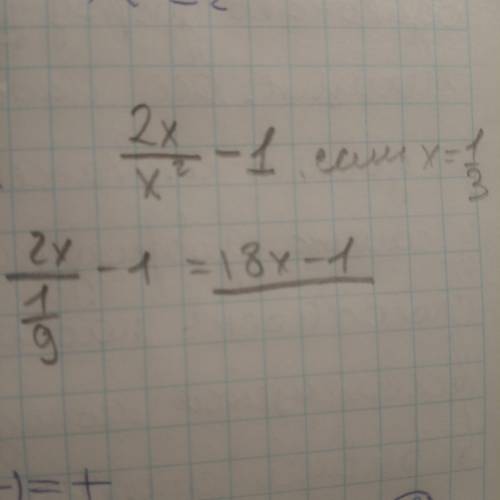 2x/x² - 1, если x = 1/3
2x/(1/9) - 1 = 18x - 1
-) = +